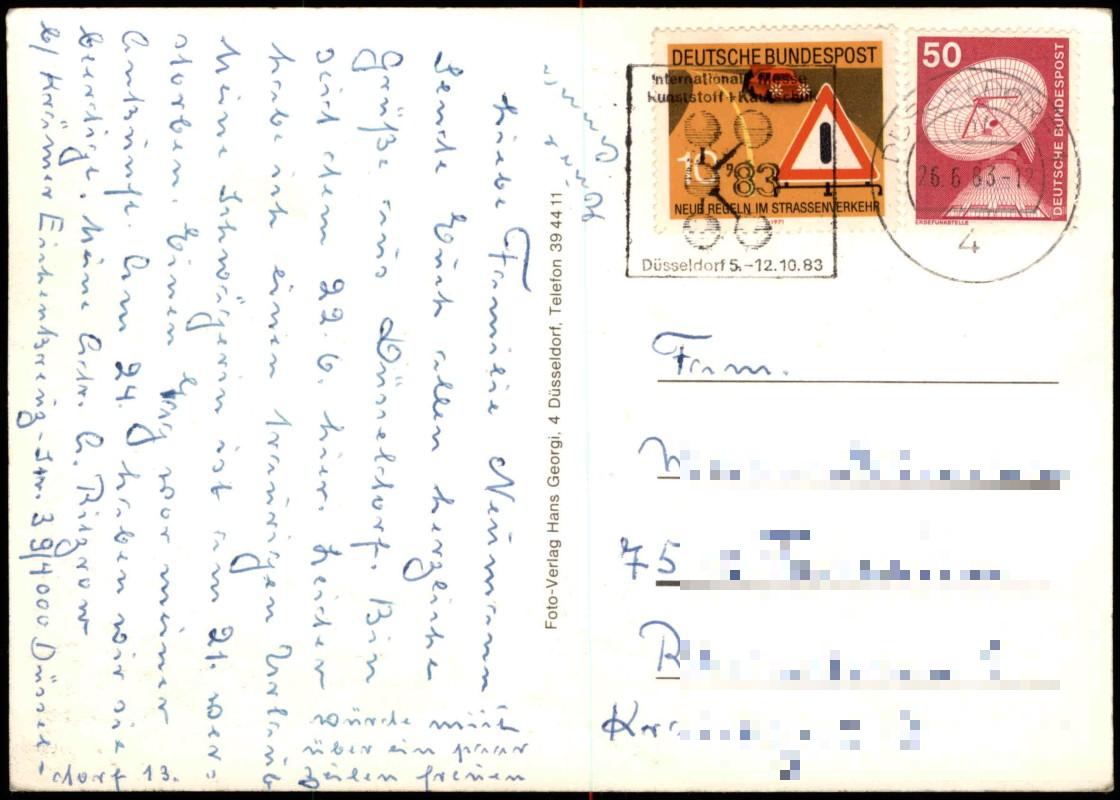 Liebe Familie Neumann
Sende Euch allen herzliche
Grüße aus Düsseldorf. Bin
seit dem 22.6. hier. Leider
habe ich einen traurigen Urlaub
Meine Schwägerin ist am 21. ver=
storben. Einen Tag vor meiner
Ankunft. Am 24. haben wir sie
beerdigt. Meine Adr. A.
b/ Krämer 39/4000 Düssel-
dorf 13.
würde mich
über ein paar
Zeilen freuen
Foto-Verlag Hans Georgi, 4 Düsseldorf, Telefon 39 44 11
DEUTSCHE BUNDESPOST
NEUE REGELN IM STRASSENVERKEHR
10
1971
50
DEUTSCHE BUNDESPOST
ERDEFUNKSTELLE
Internationale Messe
Kunststoff + Kautschuk
'83
Düsseldorf 5.-12.10.83
26.6.83-12
4
Fam.
75